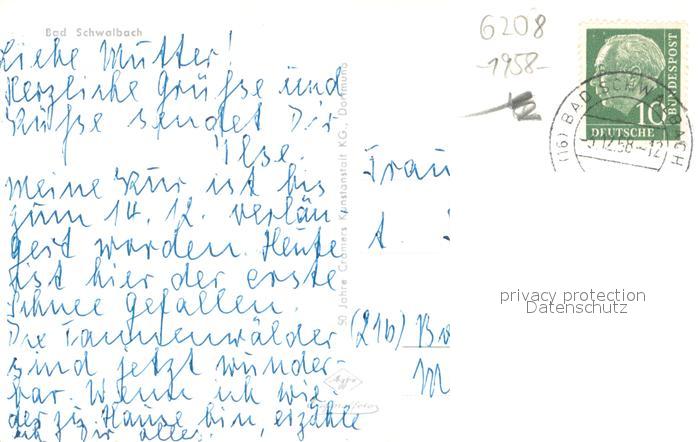 Bad Schwalbach
Liebe Mutter!
Herzliche Grüße und
Küße sendet Dir
Ilse.
Meine Kur ist bis
zum 14. 12. verlän-
gert worden. Heute
ist hier der erste
Schnee gefallen.
Die Tannenwälder
sind jetzt wunder-
bar. Wenn ich wie-
der zu Hause bin, erzähle
ich Dir alles.
50 Jahre Cramers Kunstanstalt KG., Dortmund
6208
-1958-
DEUTSCHE
BUNDESPOST
10
(16) BAD SCHWALBACH
12.58-12
Frau
(21b)
privacy protection
Datenschutz